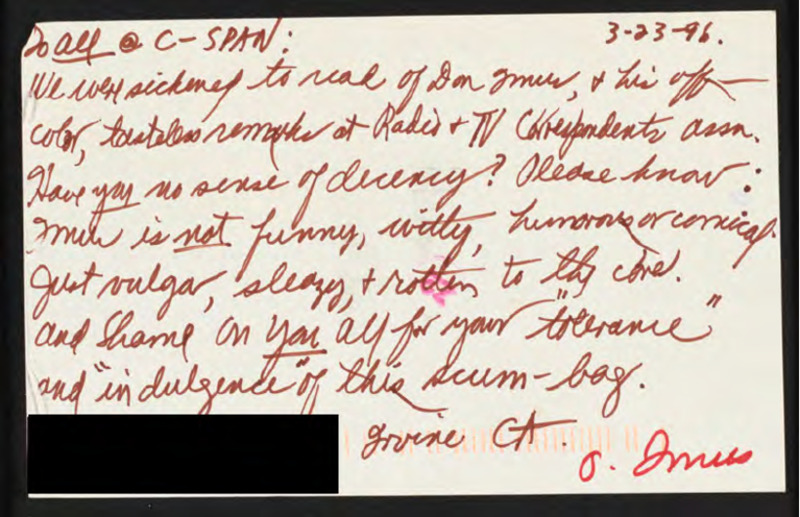 To all @ C-SPAN:
3-23-96.
We were sickened to read of Don Imus, & his off-
color, tasteless remarks at Radio & TV Correspondents assn.
Have you no sense of decency? Please know:
Imus is not funny, witty, humorous or comical.
Just vulgar, sleazy, & rotten to the core.
and Shame on You all for your "tolerance"
and "indulgence" of this scum-bag.
Irvine CA
J. Imus